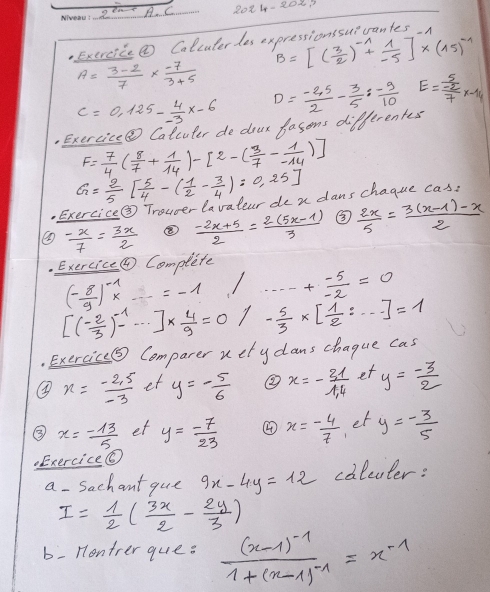 Niveau : 2ème A.C 2024-2025
. Exercice ① Calculer les expressions suivantes
A = (3-2)/7 × (-7)/(3+5) B = [(3/2)^-1 + 1/(-5)]^-1 × (15)^-1
C = 0,125 - 4/(-3) × -6 D = (-2,5)/2 - 3/5 : (-9)/10 E = (5/(-2))/7 × -14
. Exercice ② Calculer de deux façons différentes
F = 7/4 (8/7 + 1/14) - [2 - (3/7 - 1/(-14))]
G = 2/5 [5/4 - (1/2 - 3/4) : 0,25]
. Exercice ③ Trouver la valeur de x dans chaque cas :
① -x/7 = 3x/2 ② (-2x+5)/2 = 2(5x-1)/3 ③ 2x/5 = (3(x-1)-x)/2
. Exercice ④ Complète
(-8/9)^-1 × ... = -1 / ..... + (-5)/(-2) = 0
[(-2/3)^-1 - ...] × 4/9 = 0 / -5/3 × [1/2 : ...] = 1
. Exercice ⑤ Comparer x et y dans chaque cas
① x = (-2,5)/(-3) et y = -5/6 ② x = -21/1,4 et y = (-3)/2
③ x = (-13)/5 et y = (-7)/23 ④ x = (-4)/7 et y = (-3)/5
. Exercice ⑥
a - Sachant que 9x - 4y = 12 calculer :
I = 1/2 (3x/2 - 2y/3)
b - Montrer que : (x-1)^-1/(1+(x-1)^-1) = x^-1